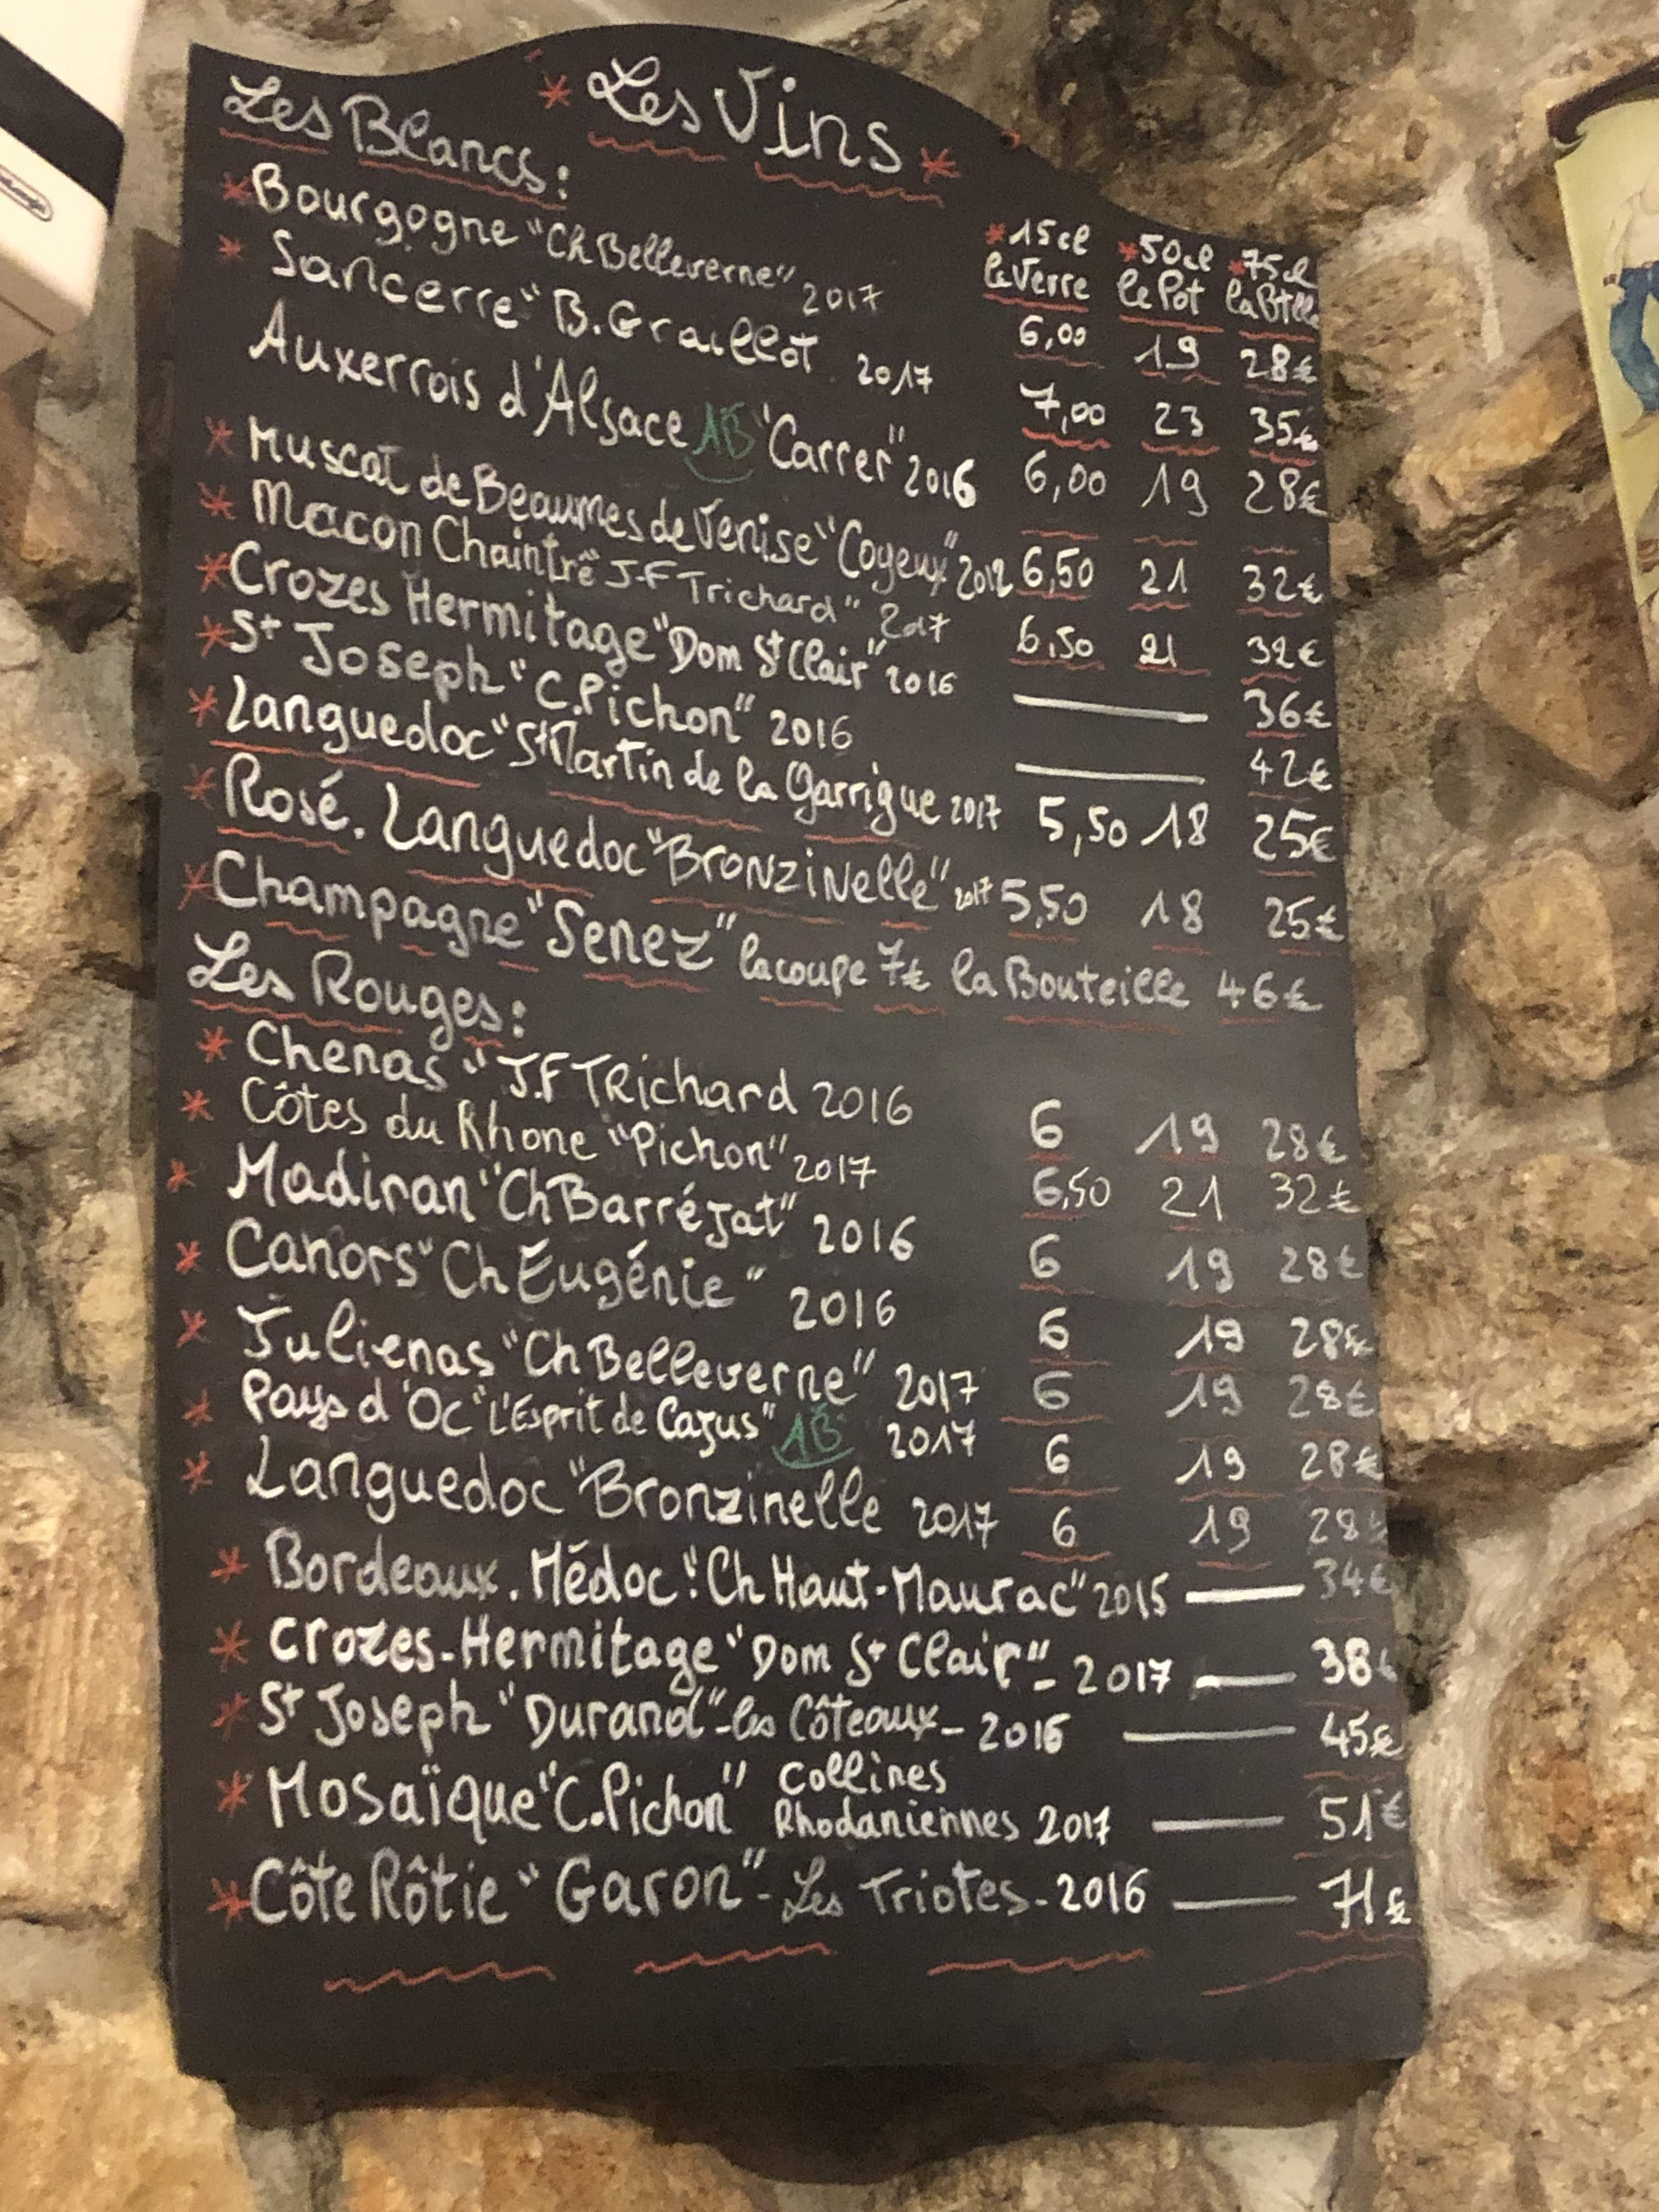 * Les Vins *
Les Blancs :
*15cl *50cl *75cl
le Verre le Pot la Btlle
* Bourgogne "Ch Belleverne" 2017 6,00 19 28€
* Sancerre "B. Graillot 2017 7,00 23 35€
Auxerrois d'Alsace AB "Carrer" 2016 6,00 19 28€
* Muscat de Beaumes de Venise "Coyeux" 2012 6,50 21 32€
* Macon Chaintré "J-F Trichard" 2017 6,50 21 32€
* Crozes Hermitage "Dom St Clair" 2016 — 36€
* St Joseph "C.Pichon" 2016 — 42€
* Languedoc "St Martin de la Garrigue 2017 5,50 18 25€
* Rosé. Languedoc "Bronzinelle" 2017 5,50 18 25€
* Champagne "Senez" la coupe 7€ la Bouteille 46€
Les Rouges :
* Chenas "J.F TRichard 2016 6 19 28€
* Côtes du Rhone "Pichon" 2017 6,50 21 32€
* Madiran "Ch Barréjat" 2016 6 19 28€
* Canors "Ch Eugénie" 2016 6 19 28€
* Julienas "Ch Belleverne" 2017 6 19 28€
* Pays d'Oc "L'Esprit de Cazus" AB 2017 6 19 28€
* Languedoc "Bronzinelle 2017 6 19 28€
* Bordeaux. Médoc "Ch Haut-Maurac" 2015 — 34€
* Crozes-Hermitage "Dom St Clair" - 2017 — 38€
* St Joseph "Durand" - les Côteaux - 2016 — 45€
* Mosaïque "C.Pichon" Collines
Rhodaniennes 2017 — 51€
* Côte Rôtie "Garon" - Les Triotes - 2016 — 71€